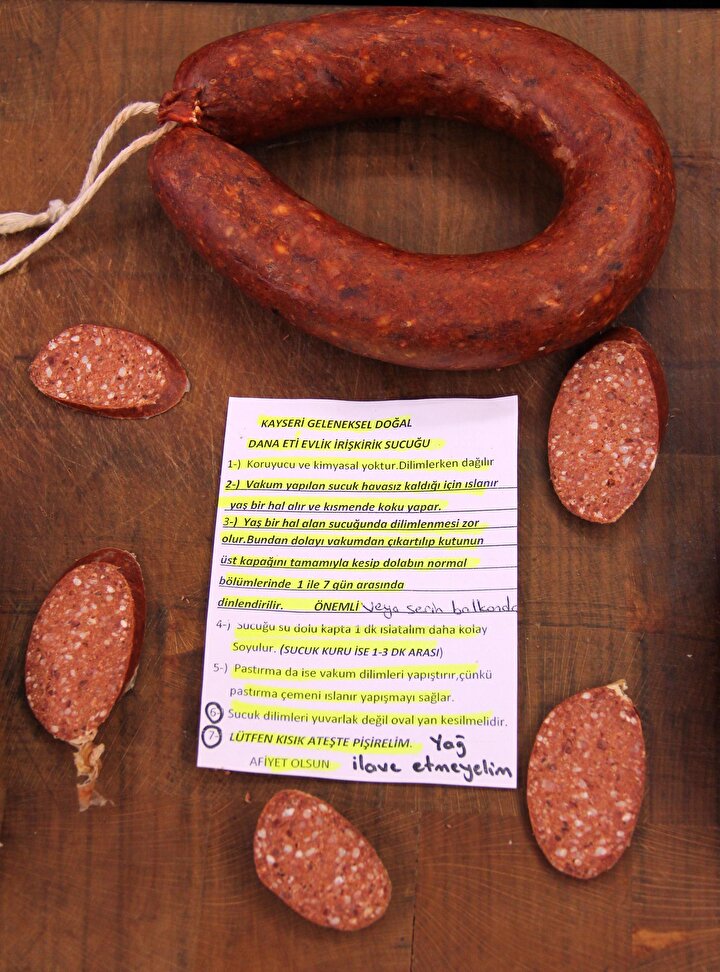 KAYSERİ GELENEKSEL DOĞAL
DANA ETİ EVLİK İRİŞKİRİK SUCUĞU
1-) Koruyucu ve kimyasal yoktur.Dilimlerken dağılır
2-) Vakum yapılan sucuk havasız kaldığı için ıslanır
yaş bir hal alır ve kısmende koku yapar.
3-) Yaş bir hal alan sucuğunda dilimlenmesi zor
olur.Bundan dolayı vakumdan çıkartılıp kutunun
üst kapağını tamamıyla kesip dolabın normal
bölümlerinde 1 ile 7 gün arasında
dinlendirilir. ÖNEMLİ veya serin balkonda
4-) Sucuğu su dolu kapta 1 dk ıslatalım daha kolay
Soyulur. (SUCUK KURU İSE 1-3 DK ARASI)
5-) Pastırma da ise vakum dilimleri yapıştırır,çünkü
pastırma çemeni ıslanır yapışmayı sağlar.
6- Sucuk dilimleri yuvarlak değil oval yan kesilmelidir.
7- LÜTFEN KISIK ATEŞTE PİŞİRELİM. Yağ
AFİYET OLSUN ilave etmeyelim